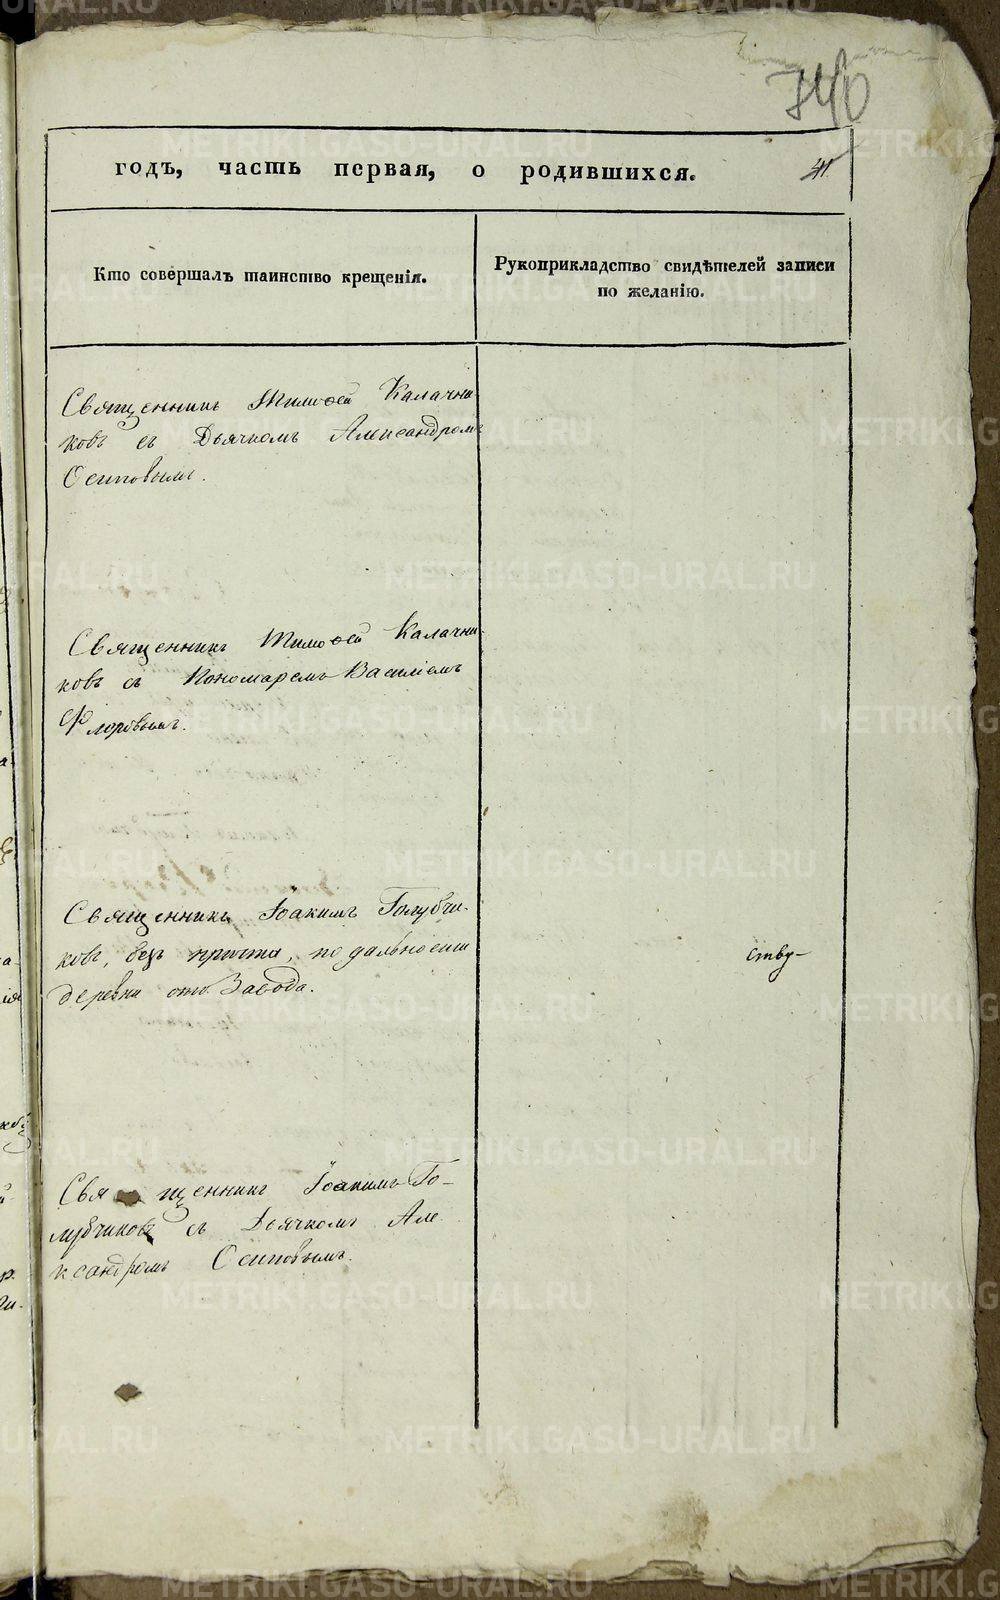 740
годъ, часть первая, о родившихся.
41
Кто совершалъ таинство крещенія.
Рукоприкладство свидѣтелей записи
по желанію.
Священникъ Тимоѳей Калачни-
ковъ съ Дьячкомъ Александромъ
Осиповымъ.
Священникъ Тимоѳей Калачни-
ковъ съ Пономаремъ Василіемъ
Флоровымъ.
Священникъ Іоакимъ Голубчи-
ковъ, безъ причта, по дальности
деревни отъ Завода.
ству-
Священникъ Іоакимъ Го-
лубчиковъ съ Дьячкомъ Але
ксандромъ Осиповымъ.
METRIKI.GASO-URAL.RU